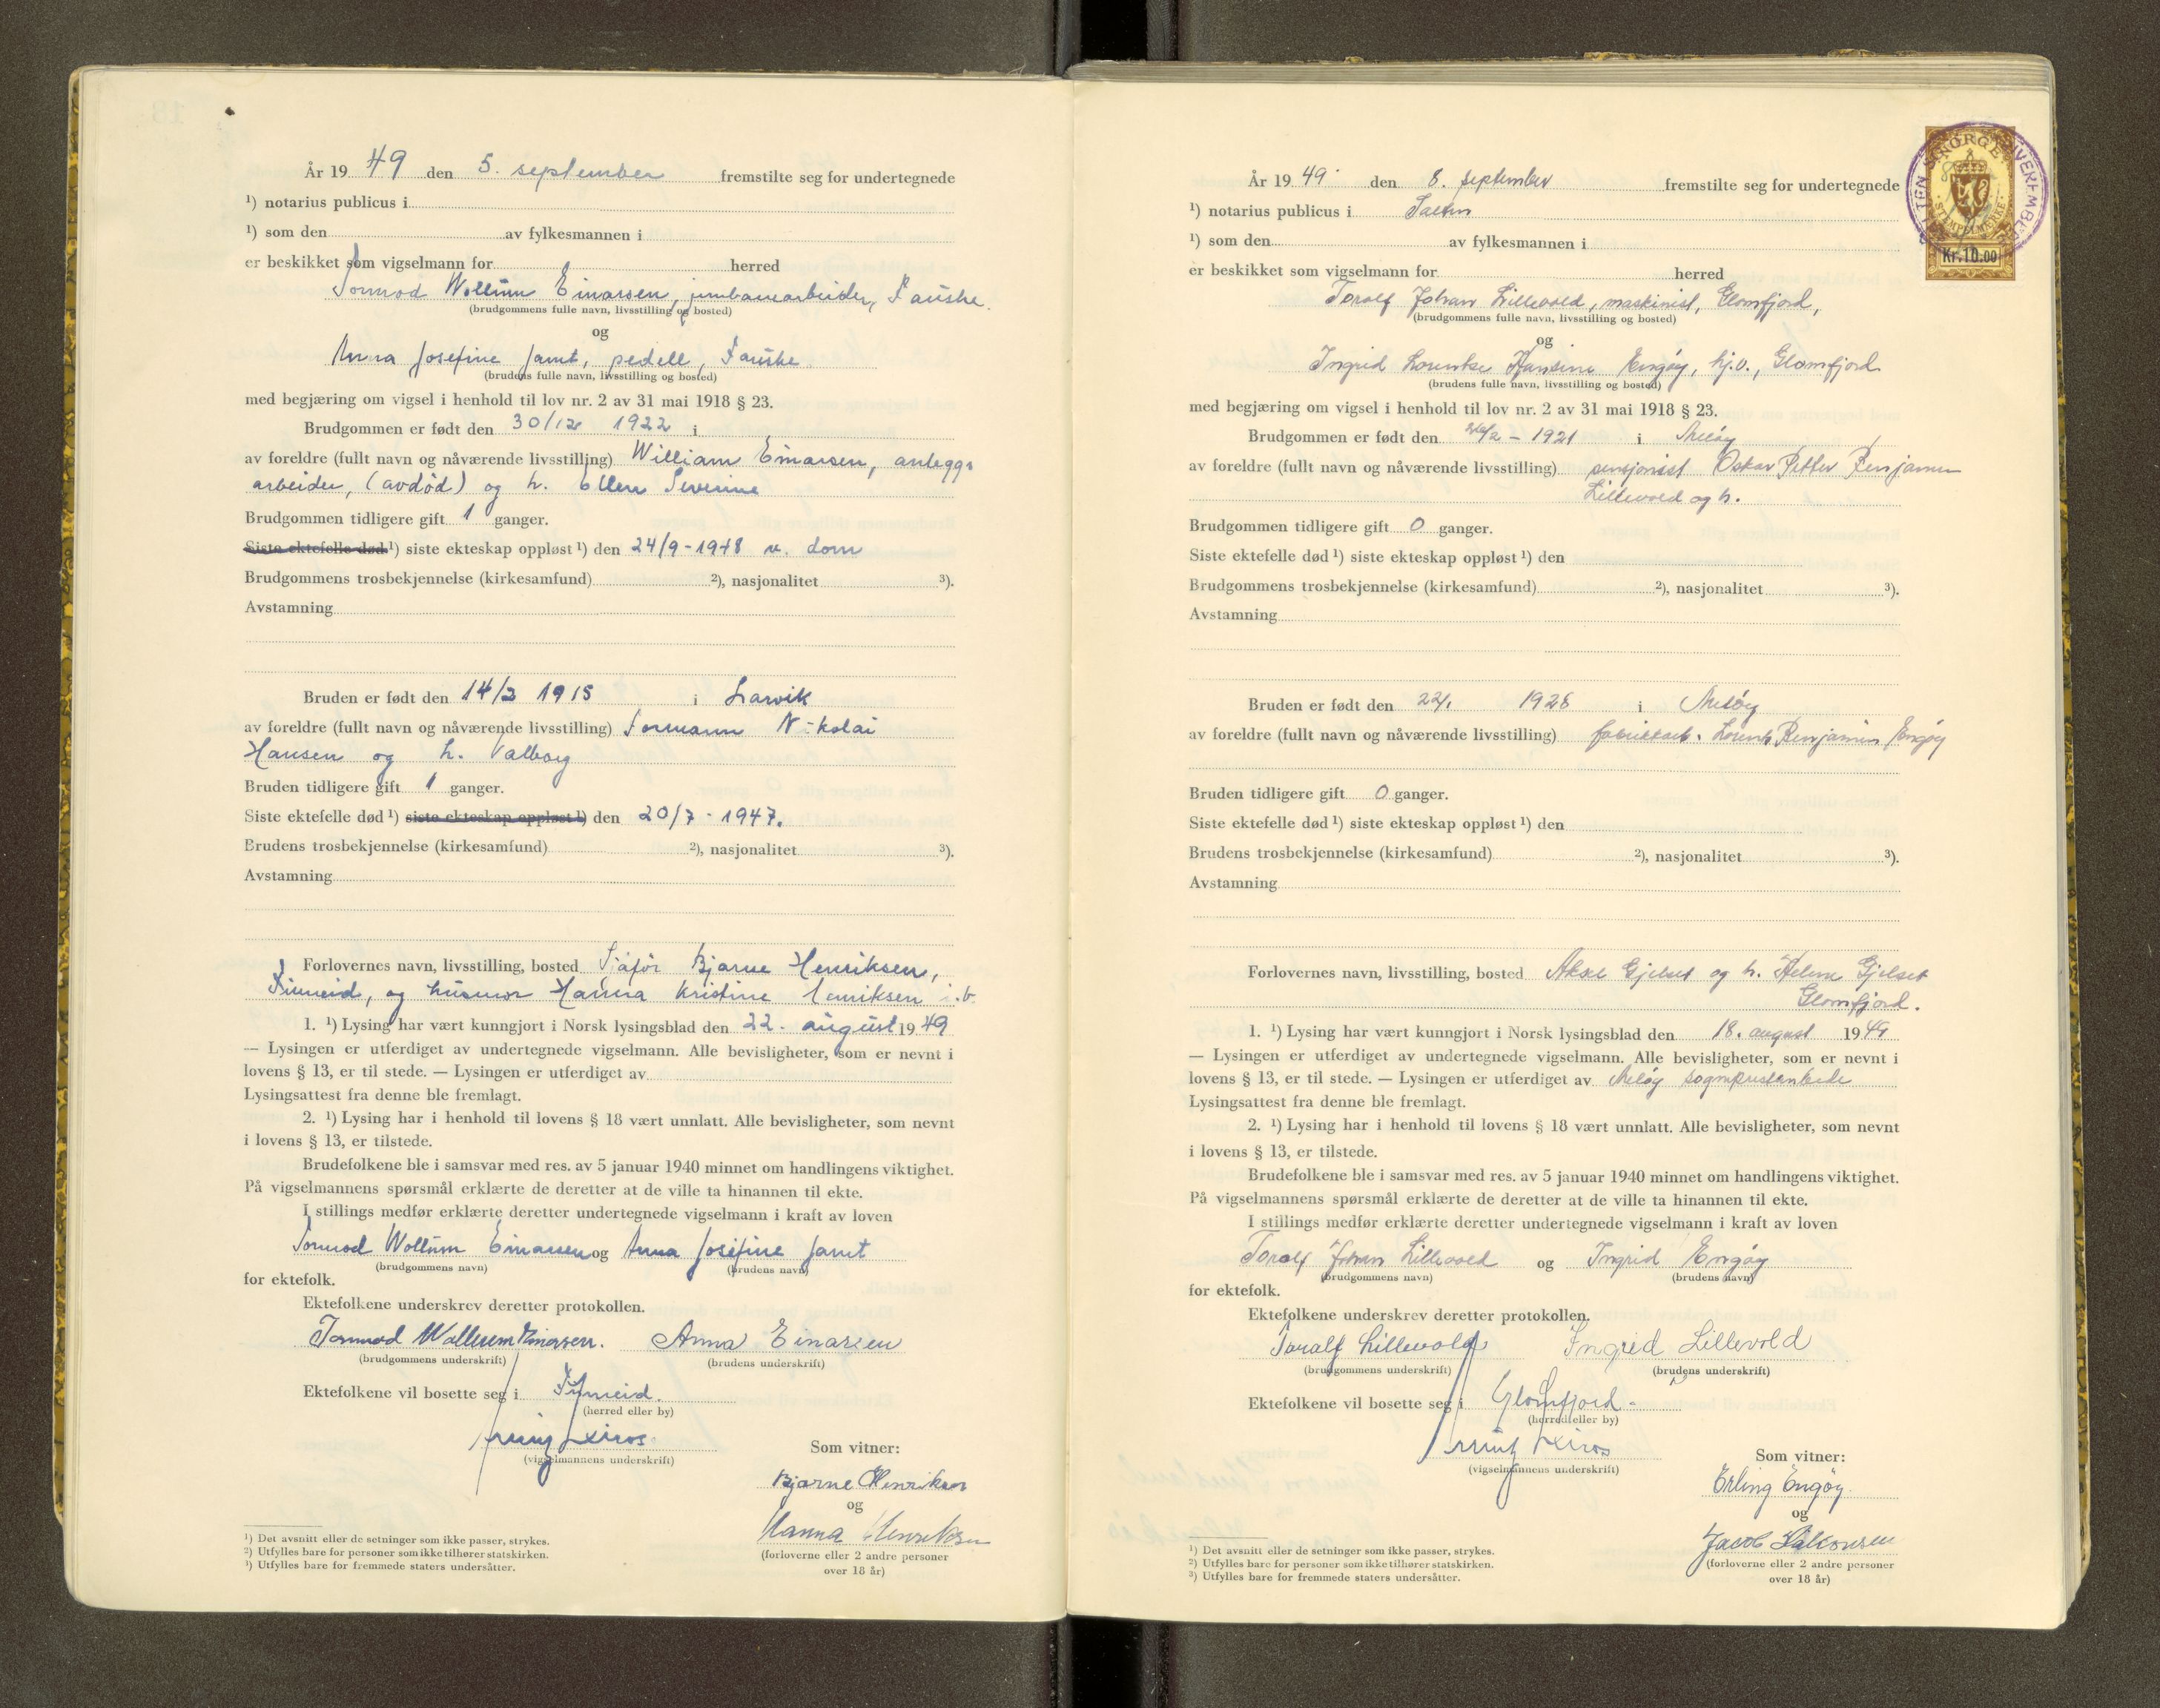 År 19 49 den 5. september fremstilte seg for undertegnede
¹) notarius publicus i
¹) som den av fylkesmannen i
er beskikket som vigselmann for herred
Tormod Wollum Einarsen, jernbanearbeider, Fauske.
(brudgommens fulle navn, livsstilling og bosted)
og
Anna Josefine Jamt, pedell, Fauske
(brudens fulle navn, livsstilling og bosted)
med begjæring om vigsel i henhold til lov nr. 2 av 31 mai 1918 § 23.
Brudgommen er født den 30/12 1922 i
av foreldre (fullt navn og nåværende livsstilling) William Einarsen, anleggs
arbeider, (avdød) og h. Ellen Severine
Brudgommen tidligere gift 1 ganger.
Siste ektefelle død ¹) siste ekteskap oppløst ¹) den 24/9-1948 v. dom
Brudgommens trosbekjennelse (kirkesamfund) ²), nasjonalitet ³).
Avstamning
Bruden er født den 14/3 1915 i Larvik
av foreldre (fullt navn og nåværende livsstilling) Formann Nikolai
Hansen og h. Valborg
Bruden tidligere gift 1 ganger.
Siste ektefelle død ¹) siste ekteskap oppløst ¹) den 20/7-1947.
Brudens trosbekjennelse (kirkesamfund) ²), nasjonalitet ³).
Avstamning
Forlovernes navn, livsstilling, bosted Sjåfør Bjarne Henriksen,
Finneid, og husmor Hanna Kristine Henriksen i.b.
1. ¹) Lysing har vært kunngjort i Norsk lysingsblad den 22. august 19 49
— Lysingen er utferdiget av undertegnede vigselmann. Alle bevisligheter, som er nevnt i
lovens § 13, er til stede. — Lysingen er utferdiget av
Lysingsattest fra denne ble fremlagt.
2. ¹) Lysing har i henhold til lovens § 18 vært unnlatt. Alle bevisligheter, som nevnt
i lovens § 13, er tilstede.
Brudefolkene ble i samsvar med res. av 5 januar 1940 minnet om handlingens viktighet.
På vigselmannens spørsmål erklærte de deretter at de ville ta hinannen til ekte.
I stillings medfør erklærte deretter undertegnede vigselmann i kraft av loven
Tormod Wollum Einarsen og Anna Josefine Jamt
(brudgommens navn) (brudens navn)
for ektefolk.
Ektefolkene underskrev deretter protokollen.
Tormod Wollum Einarsen. Anna Einarsen
(brudgommens underskrift) (brudens underskrift)
Ektefolkene vil bosette seg i Finneid.
(herred eller by)
Som vitner:
(vigselmannens underskrift)
Bjarne Henriksen
og
Hanna Henriksen
(forloverne eller 2 andre personer
over 18 år)
¹) Det avsnitt eller de setninger som ikke passer, strykes.
²) Utfylles bare for personer som ikke tilhører statskirken.
³) Utfylles bare for fremmede staters undersåtter.
NORGE
STEMPELMERKE
Kr. 10.00
År 19 49 den 8. september fremstilte seg for undertegnede
¹) notarius publicus i Salten
¹) som den av fylkesmannen i
er beskikket som vigselmann for herred
Toralf Johan Lillevold, maskinist, Glomfjord,
(brudgommens fulle navn, livsstilling og bosted)
og
Ingrid Lorentse Hansine Engøy, hj.v., Glomfjord
(brudens fulle navn, livsstilling og bosted)
med begjæring om vigsel i henhold til lov nr. 2 av 31 mai 1918 § 23.
Brudgommen er født den - 1921 i Meløy
av foreldre (fullt navn og nåværende livsstilling) pensjonist Oskar Petter Benjamin
Lillevold og h.
Brudgommen tidligere gift 0 ganger.
Siste ektefelle død ¹) siste ekteskap oppløst ¹) den
Brudgommens trosbekjennelse (kirkesamfund) ²), nasjonalitet ³).
Avstamning
Bruden er født den 22/1 1928 i Meløy
av foreldre (fullt navn og nåværende livsstilling) fabrikkarb. Lorents Benjamin Engøy
Bruden tidligere gift 0 ganger.
Siste ektefelle død ¹) siste ekteskap oppløst ¹) den
Brudens trosbekjennelse (kirkesamfund) ²), nasjonalitet ³).
Avstamning
Forlovernes navn, livsstilling, bosted Aksel Gjelset og h. Helene Gjelset
Glomfjord.
1. ¹) Lysing har vært kunngjort i Norsk lysingsblad den 18. august 19 49
— Lysingen er utferdiget av undertegnede vigselmann. Alle bevisligheter, som er nevnt i
lovens § 13, er til stede. — Lysingen er utferdiget av Meløy sogneprestembede
Lysingsattest fra denne ble fremlagt.
2. ¹) Lysing har i henhold til lovens § 18 vært unnlatt. Alle bevisligheter, som nevnt
i lovens § 13, er tilstede.
Brudefolkene ble i samsvar med res. av 5 januar 1940 minnet om handlingens viktighet.
På vigselmannens spørsmål erklærte de deretter at de ville ta hinannen til ekte.
I stillings medfør erklærte deretter undertegnede vigselmann i kraft av loven
Toralf Johan Lillevold og Ingrid Engøy
(brudgommens navn) (brudens navn)
for ektefolk.
Ektefolkene underskrev deretter protokollen.
Toralf Lillevold Ingrid Lillevold
(brudgommens underskrift) (brudens underskrift)
Ektefolkene vil bosette seg i Glomfjord.
(herred eller by)
Som vitner:
(vigselmannens underskrift)
Erling Engøy
og
Jacob
(forloverne eller 2 andre personer
over 18 år)
¹) Det avsnitt eller de setninger som ikke passer, strykes.
²) Utfylles bare for personer som ikke tilhører statskirken.
³) Utfylles bare for fremmede staters undersåtter.